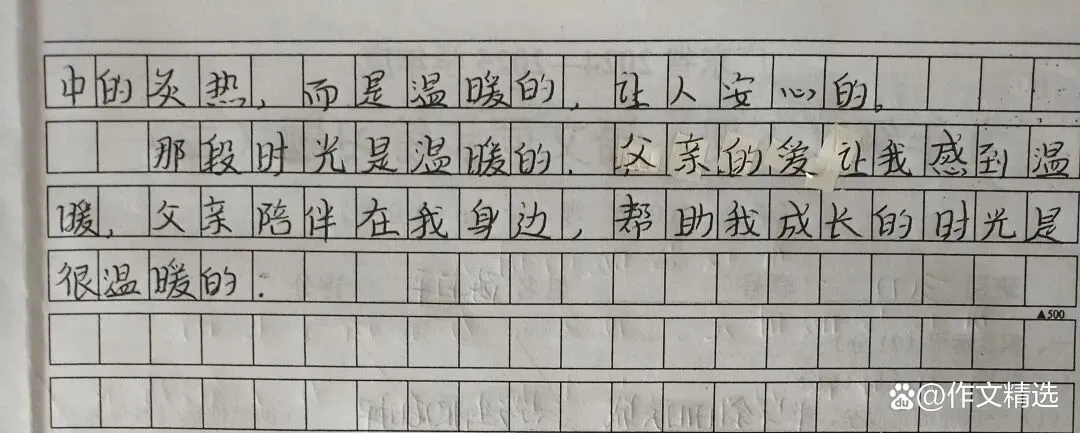 中的炙热，而是温暖的，让人安心的。
那段时光是温暖的．父亲的爱让我感到温
暖，父亲陪伴在我身边，帮助我成长的时光是
很温暖的．
▲500
du@作文精选